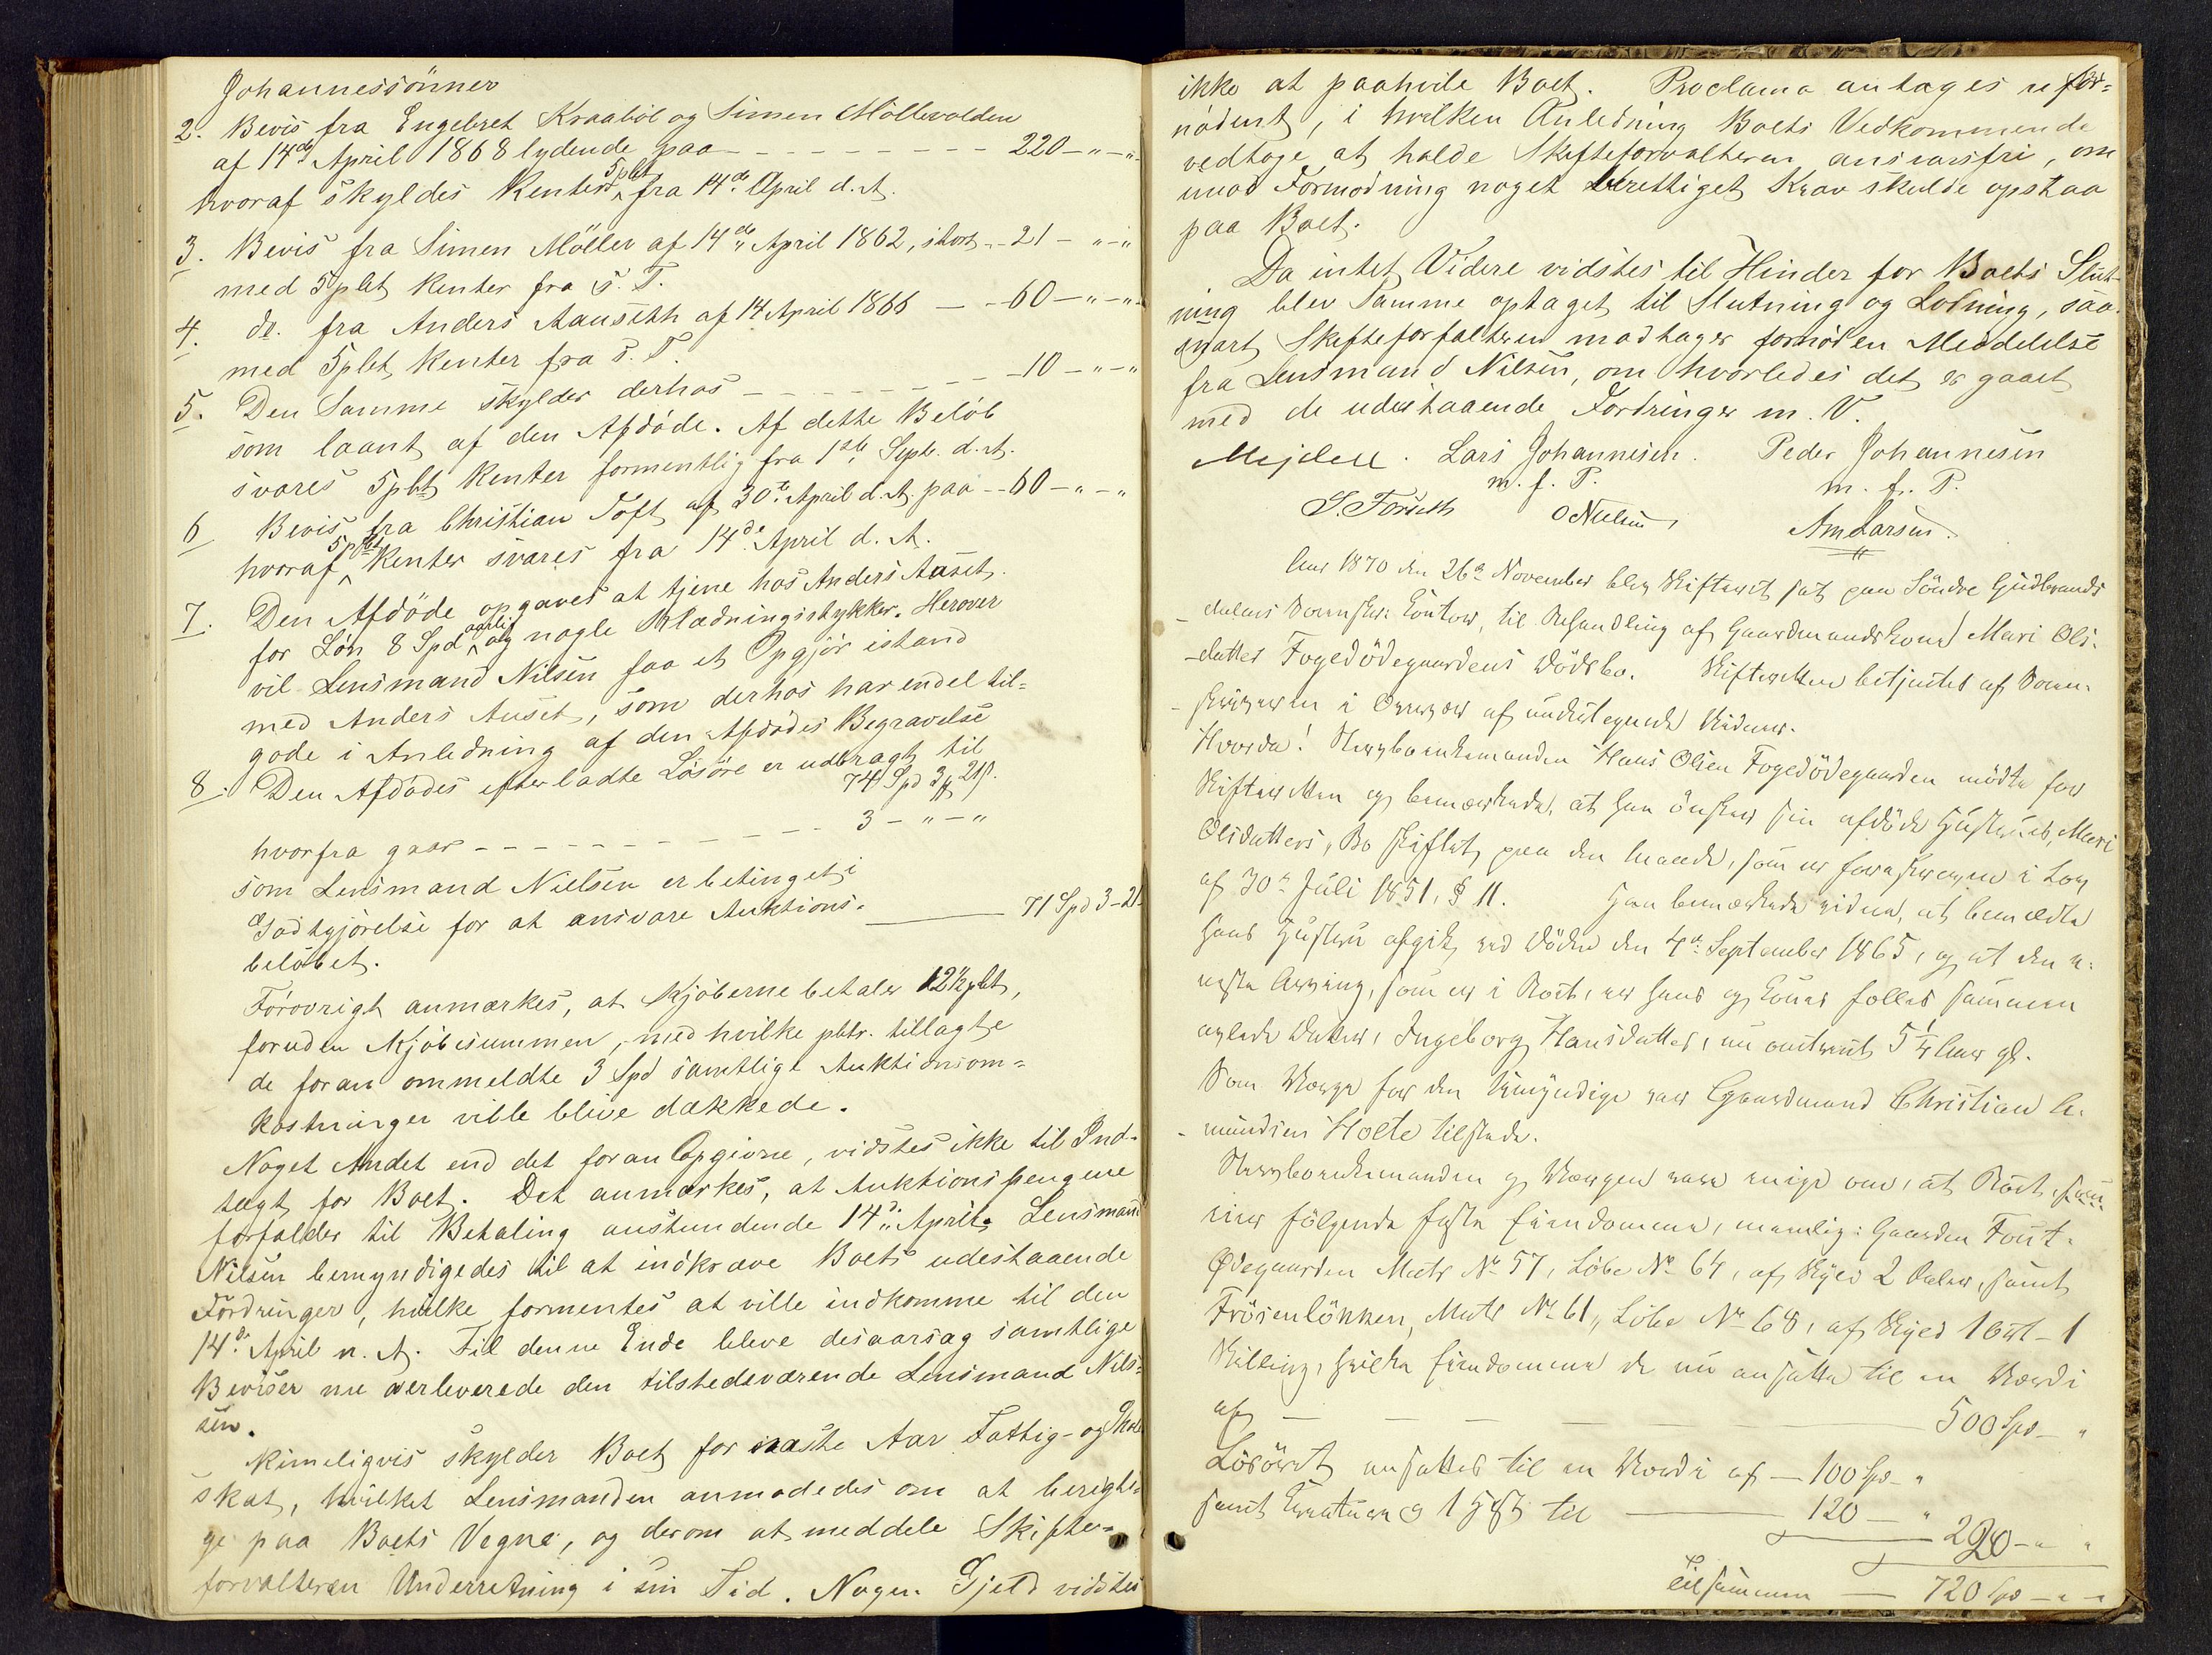 Johannessönner
2. Bevis fra Engebret Kraaböl og Simen Möllevolden
af 14de April 1868 lydende paa - - - - - - - - - 220 - " - "
hvoraf skyldes Renter 5 pCt fra 14de April d. A.
3. Bevis fra Simen Möller af 14de April 1862, stort - - 21 - " - "
med 5 pCt Renter fra s. T.
4. do. fra Anders Aauseth af 14 April 1866 - - - 60 - " - "
med 5 pCt Renter fra s. T.
5. Den Samme skylder derhos - - - - - - - 10 - " - "
som laant af den Afdöde. Af dette Belöb
svares 5 pCt Renter formentlig fra 1ste Septr. d. A.
6 Bevis fra Christian Toft af 30te April d. A. paa - - 60 - " - "
hvoraf 5 pCt Renter svares fra 14de April d. A.
7. Den Afdöde opgaves at tjene hos Anders Aaset
for Lön 8 Spd aarlig og nogle Klædningsstykker. Herover
vil Lensmand Nilsen faa et Opgjör istand
med Anders Auset, som derhos har endel til-
gode i Anledning af den Afdödes Begravelse
8. Den Afdödes efterladte Lösöre er udbragt til
74 Spd 3 # 21 s.
hvorfra gaar - - - - - - - - - 3 - " - "
som Lensmand Nielsen er betinget i
Godtgjörelse for at ansvare Auktions- 71 Spd 3 - 21
belöbet.
Forövrigt anmærkes, at Kjöberne betaler 12½ pCt,
foruden Kjöbesummen, med hvilke pCtr. tillagte
de foran ommeldte 3 Spd samtlige Auktionsom-
kostninger ville blive dækkede.
Noget Andet end det foran Opgivne, vidstes ikke til Ind-
tægt for Boet. Det anmærkes, at Auktionspengene
forfalder til Betaling anstundende 14de April. Lensmand
Nilsen bemyndigedes til at indkræve Boets udestaaende
Fordringer, hvilke formentes at ville indkomme til den
14de April n. A. Til denne Ende bleve desaarsag samtlige
Beviser nu overleverede den tilstedeværende Lensmand Nils-
sen.
Rimeligvis skylder Boet for næste Aar Fattig- og Skole
skat, hvilket Lensmanden anmodedes om at berigti-
ge paa Boets Vegne, og derom at meddele Skifte-
forvalteren Underretning i sin Tid. Nogen Gjeld vidstes
ikke at paahvile Boet. Proclama antages ufor-
nödent, i hvilken Anledning Boets Vedkommende
vedtoge at holde Skifteforvalteren ansvarsfri, om
imod Formodning noget berettiget Krav skulde opstaa
paa Boet.
Da intet Videre vidstes til Hinder for Boets Slut-
ning blev Samme optaget til Slutning og Lodning, saa-
snart Skifteforfalteren modtager fornöden Meddelelse
fra Lensmand Nilsen, om hvorledes det er gaaet
med de udestaaende Fordringer m. V.
Mejdell. Lars Johannesen. Peder Johannesen
m. f. P. m. f. P.
S. Forseth O Nielsen Am Larsen.
Aar 1870 den 26de November blev Skifteret sat paa Söndre Gudbrands
dalens Sorenskr. Contor, til Behandling af Gaardmandskone Mari Ols-
datter Fogedödegaardens Dödsbo. Skifteretten betjentes af Soren-
skriveren i Overvær af undertegnede Vidner.
Hvorda! Stervboenkemanden Hans Olsen Fogedödegaarden mödte for
Skifteretten og bemærkede, at han önsker sin afdöde Hustrues, Mari
Olsdatters, Bo skiftet paa den Maade, som er foreskreven i Lov
af 30te Juli 1851, § 11. Han bemærkede videre, at bemeldte
hans Hustru afgik ved Döden den 4de September 1865, og at den e-
neste Arving, som er i Boet, er hans og Konens fælles sammen
avlede Datter, Ingeborg Hansdatter, nu omtrent 5¼ Aar gl.
Som Værge for den Umyndige var Gaardmand Christian A-
mundsen Holte tilstede.
Stervboenkemanden og Værgen vare enige om, at Boet,
eier fölgende faste Eiendomme, nemlig: Gaarden Fout-
Ødegaarden Matr No 57, Löbe No 64, af Skyld 2 Daler, samt
Frösenlökken, Matr No 61, Löbe No 68, af Skyld 1 Ort - 1
Skilling, hvilke Eiendomme de nu ansatte til en Værdi
af - - - - - 500 Spd - "
Lösöret ansattes til en Værdi af - 100 Spd - "
samt Creature og 1 Hest til - 120 - "
220 - " "
tilsammen - 720 Spd - " - "